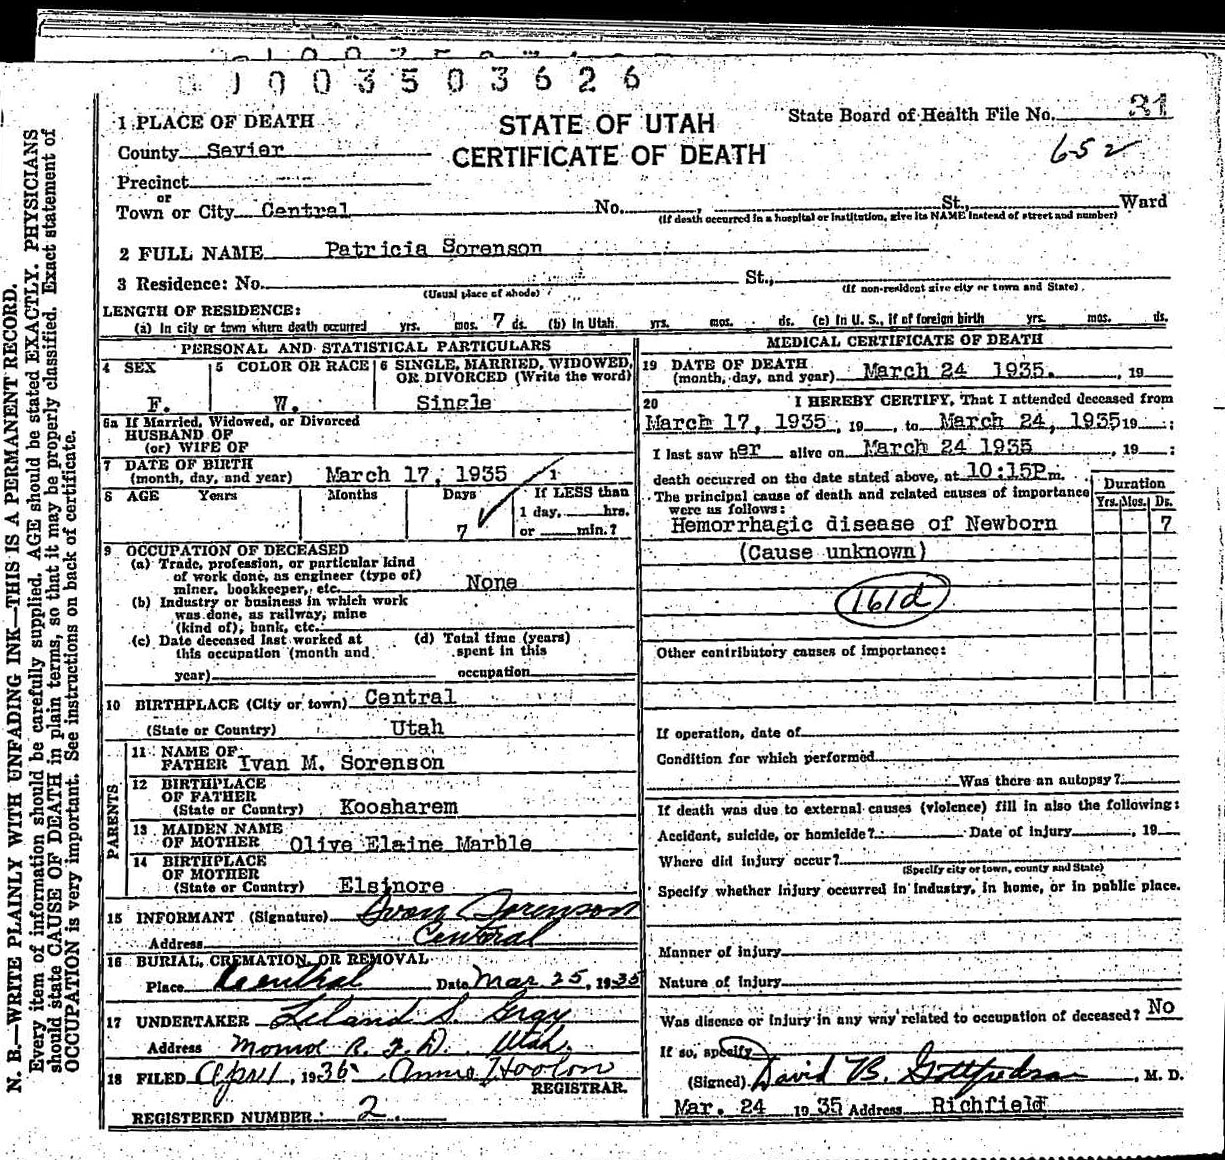 1003503626
STATE OF UTAH
CERTIFICATE OF DEATH
State Board of Health File No. 31
652
1 PLACE OF DEATH
County Sevier
Precinct
or
Town or City Central No. , St., Ward
(If death occurred in a hospital or institution, give its NAME instead of street and number)
2 FULL NAME Patricia Sorenson
3 Residence: No. St.,
(Usual place of abode) (If non-resident give city or town and State)
LENGTH OF RESIDENCE:
(a) In city or town where death occurred yrs. mos. 7 ds. (b) In Utah. yrs. mos. ds. (c) In U. S., if of foreign birth yrs. mos. ds.
PERSONAL AND STATISTICAL PARTICULARS
4 SEX 5 COLOR OR RACE 6 SINGLE, MARRIED, WIDOWED,
OR DIVORCED (Write the word)
F. W. Single
6a If Married, Widowed, or Divorced
HUSBAND OF
(or) WIFE OF
7 DATE OF BIRTH
(month, day, and year) March 17, 1935 1
8 AGE Years Months Days If LESS than
1 day, hrs.
7 or min.?
9 OCCUPATION OF DECEASED
(a) Trade, profession, or particular kind
of work done, as engineer (type of)
miner, bookkeeper, etc. None
(b) Industry or business in which work
was done, as railway, mine
(kind of), bank, etc.
(c) Date deceased last worked at (d) Total time (years)
this occupation (month and spent in this
year) occupation
10 BIRTHPLACE (City or town) Central
(State or Country) Utah
PARENTS
11 NAME OF
FATHER Ivan M. Sorenson
12 BIRTHPLACE
OF FATHER
(State or Country) Koosharem
13 MAIDEN NAME
OF MOTHER Olive Elaine Marble
14 BIRTHPLACE
OF MOTHER
(State or Country) Elsinore
15 INFORMANT (Signature) Ivan Sorenson
Address Central
16 BURIAL, CREMATION, OR REMOVAL
Place Central Date Mar 25, 1935
17 UNDERTAKER Leland S. Gray
Address Monroe R. F. D. Utah.
18 FILED April, 1936 Annie Hooton
REGISTRAR.
REGISTERED NUMBER: 2
MEDICAL CERTIFICATE OF DEATH
19 DATE OF DEATH
(month, day, and year) March 24 1935. , 19
20 I HEREBY CERTIFY, That I attended deceased from
March 17, 1935, 19 , to March 24, 1935 19 ;
I last saw her alive on March 24 1935 , 19 ;
death occurred on the date stated above, at 10:15P m.
The principal cause of death and related causes of importance
were as follows:
Duration
Yrs. Mos. Ds.
Hemorrhagic disease of Newborn 7
(Cause unknown)
161d
Other contributory causes of importance:
If operation, date of
Condition for which performed
Was there an autopsy?
If death was due to external causes (violence) fill in also the following:
Accident, suicide, or homicide? Date of injury , 19
Where did injury occur?
(Specify city or town, county and State)
Specify whether injury occurred in industry, in home, or in public place.
Manner of injury
Nature of injury
Was disease or injury in any way related to occupation of deceased? No
If so, specify
(Signed) David B. Gottfredson , M. D.
Mar. 24 19 35 Address Richfield
N. B.—WRITE PLAINLY WITH UNFADING INK—THIS IS A PERMANENT RECORD.
Every item of information should be carefully supplied. AGE should be stated EXACTLY. PHYSICIANS
should state CAUSE OF DEATH in plain terms, so that it may be properly classified. Exact statement of
OCCUPATION is very important. See instructions on back of certificate.